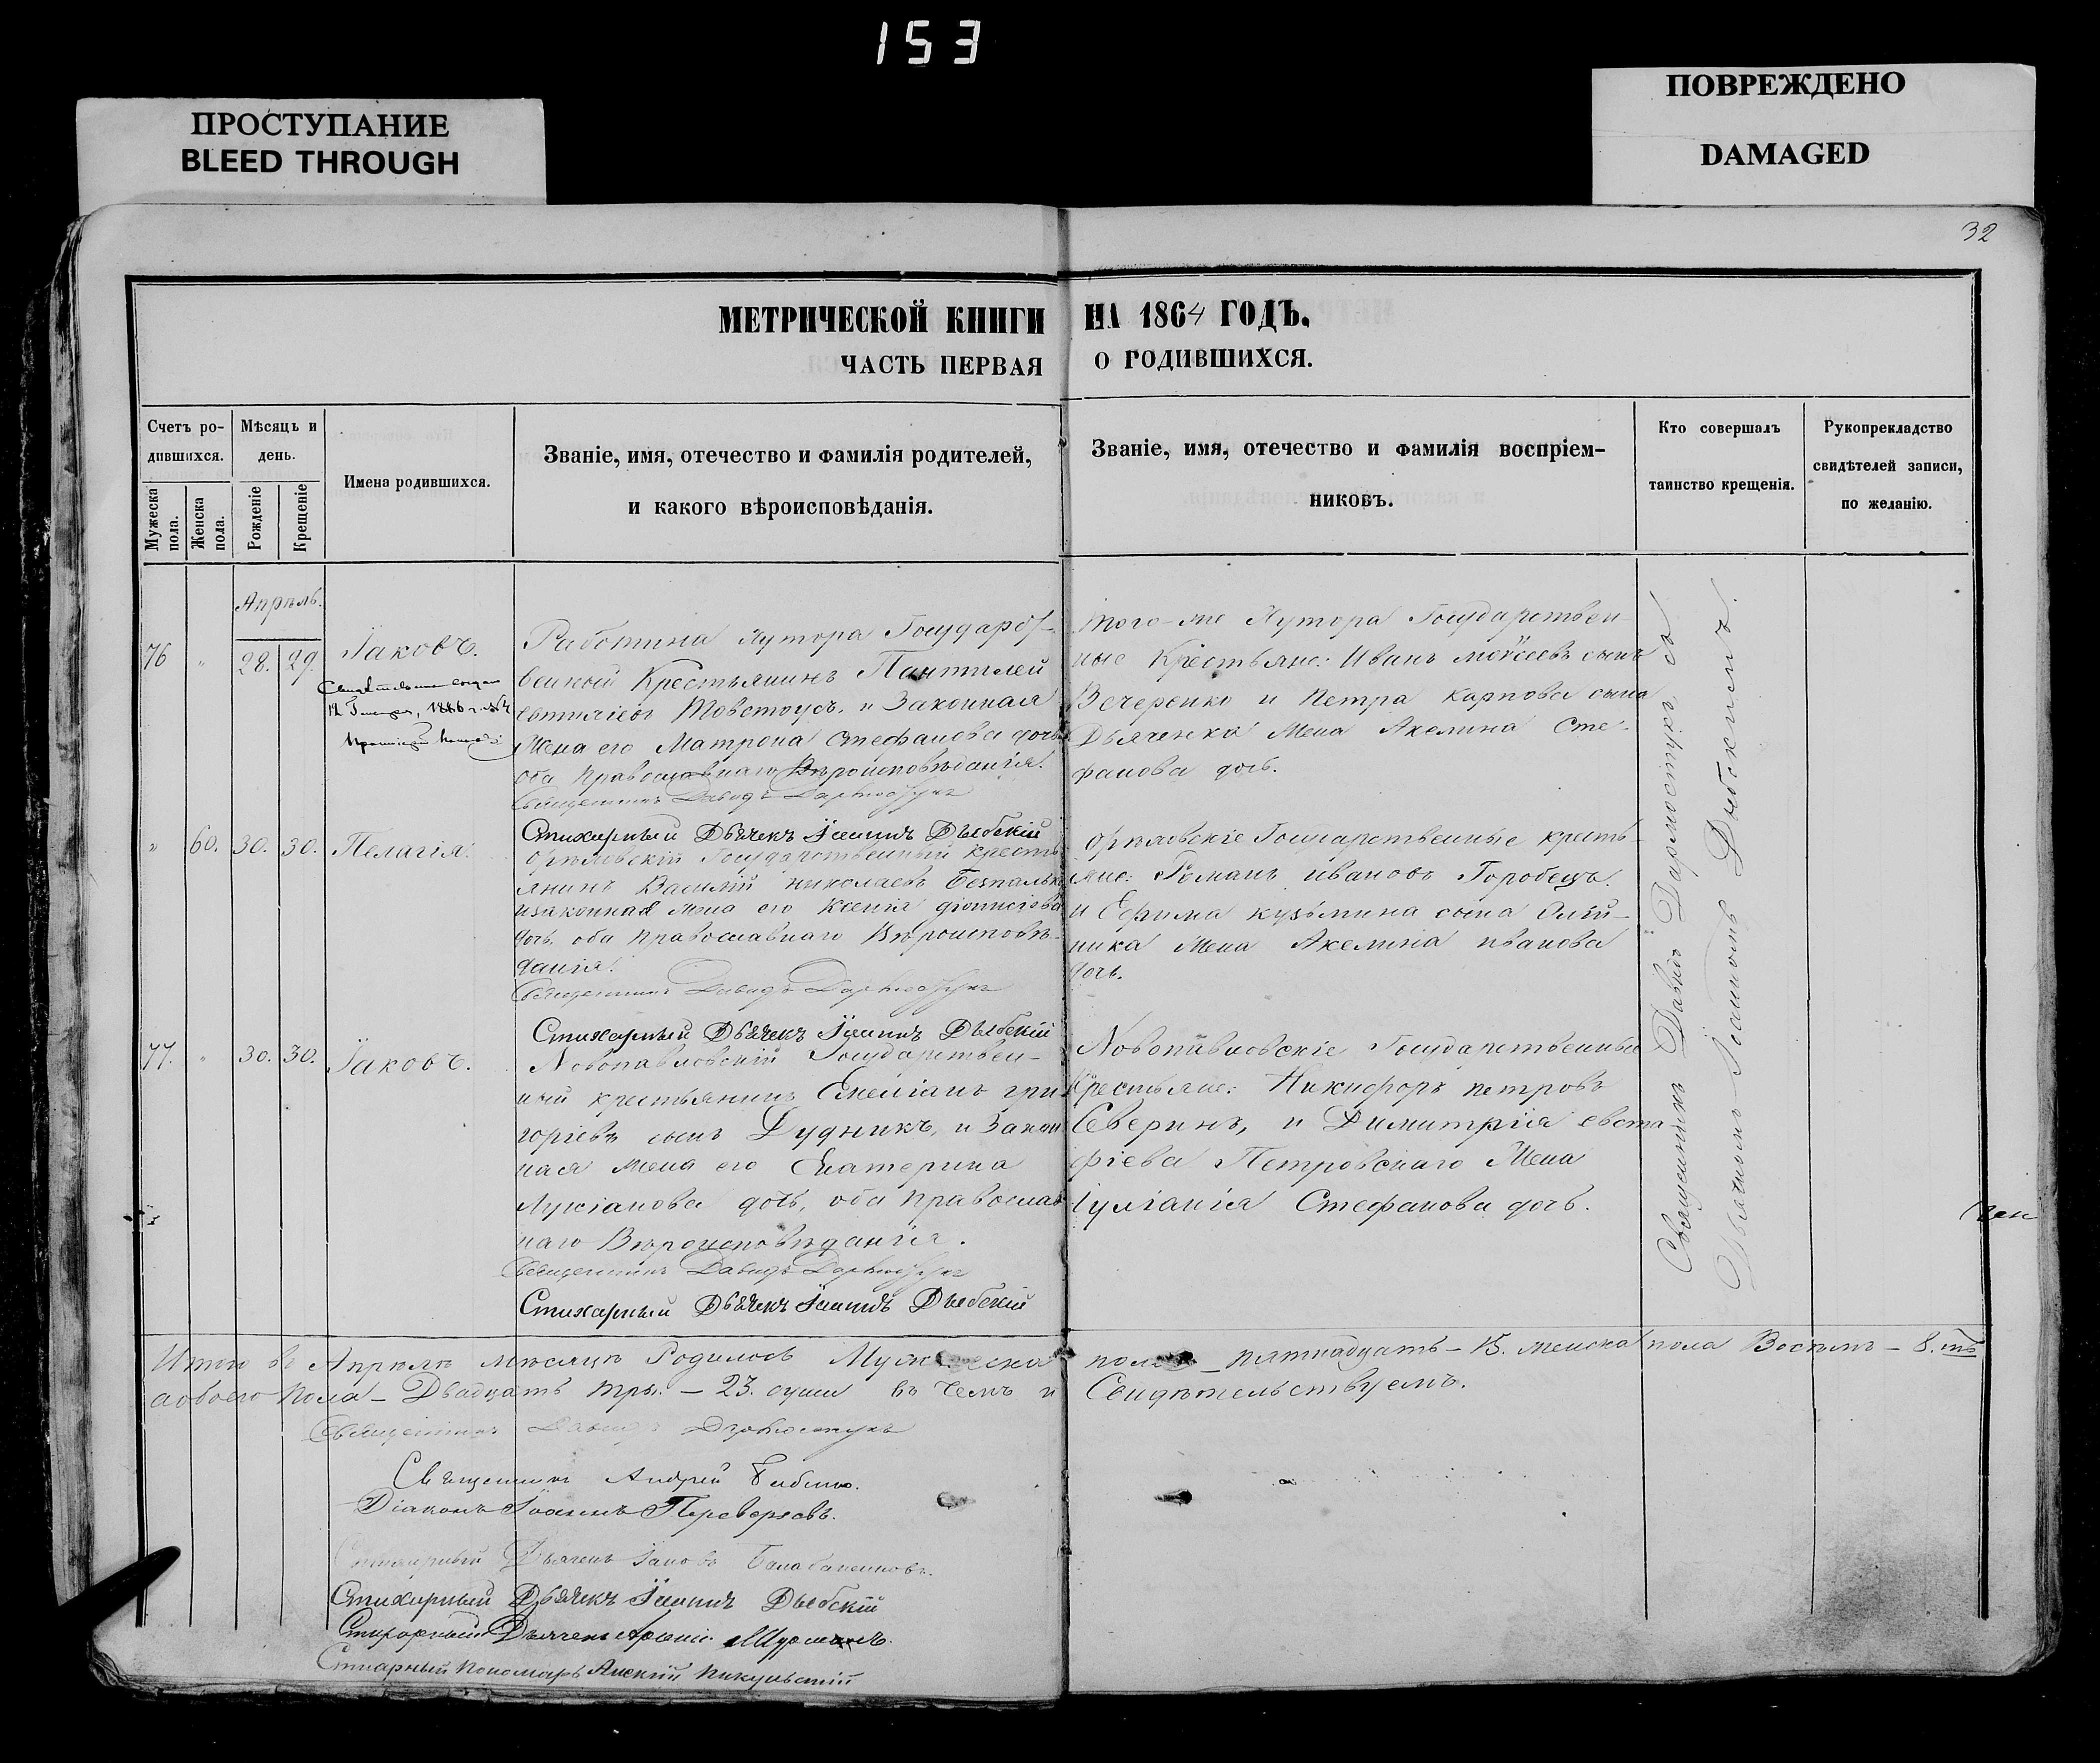 153
ПРОСТУПАНИЕ
BLEED THROUGH
ПОВРЕЖДЕНО
DAMAGED
32
МЕТРИЧЕСКОЙ КНИГИ НА 1864 ГОДЪ.
ЧАСТЬ ПЕРВАЯ О РОДИВШИХСЯ.
Счетъ ро-
дившихся.
Мужеска пола.
Женска пола.
Мѣсяцъ и
день.
Рожденіе
Крещеніе
Имена родившихся.
Званіе, имя, отечество и фамилія родителей,
и какого вѣроисповѣданія.
Званіе, имя, отечество и фамилія воспріем-
никовъ.
Кто совершалъ
таинство крещенія.
Рукопрекладство
свидѣтелей записи,
по желанію.
Апрѣль.
76 " 28. 29. Іаковъ.
12 1886 г.
Работина Хутора Государст-
венной Крестьянинъ Пантилей
Товстоусъ. и Законная
Жена его Матрона Стефанова дочь
оба православнаго Вѣроисповѣданія.
Священникъ Давидъ
Стихарный Дьячекъ Іоаннъ Дыбскій
того-же Хутора Государствен-
ные Крестьяне: Иванъ Моѵсеевъ сынъ
Вечеренко и Петра Карпова сына
Дьяченка Жена Акелина Сте-
фанова дочь.
" 60. 30. 30. Пелагія.
Орѣловскій Государственный кресть
янинъ Василій николаевъ Безпалько
изаконная жена его Ксенія діонисіева
дочь. оба православнаго Вѣроисповѣ-
данія.
Священникъ Давидъ
Стихарный Дьячекъ Іоаннъ Дыбскій
Орѣловскіе Государственные кресть-
яне: Романъ ивановъ Горобецъ.
и Ефима кузьмина сына Олій-
ника Жена Акелина иванова
дочь.
77. " 30. 30. Іаковъ.
Новопавловскій Государствен-
ный крестьянинъ Емеліанъ гри-
горіевъ сынъ Дудникъ, и Закон
ная жена его Екатерина
Лукіанова дочь, оба православ
наго Вѣроисповѣданія.
Священникъ Давидъ
Стихарный Дьячекъ Іоаннъ Дыбскій
Новопавловскіе Государственные
Крестьяне: Никифоръ петровъ
Северинъ, и Димитрія евста
фіева Петровскаго Жена
Іуліанія Стефанова дочь.
Священникъ Давидъ съ
Дьячкомъ Іоанномъ Дыбскимъ.
Итого въ Апрѣлѣ мѣсяцѣ Родилось Мужеска пола - пятнадцать - 15. женска пола Восемь - 8.
аобоего пола - Двадцать три. - 23. души въ чемъ и Свидѣтельствуемъ.
Священникъ Давидъ
Священникъ Андрей
Діаконъ Іоаннъ Переверзевъ.
Стихарный Дьячекъ Іаковъ
Стихарный Дьячекъ Іоаннъ Дыбскій
Стихарный Дьячекъ
Пономарь